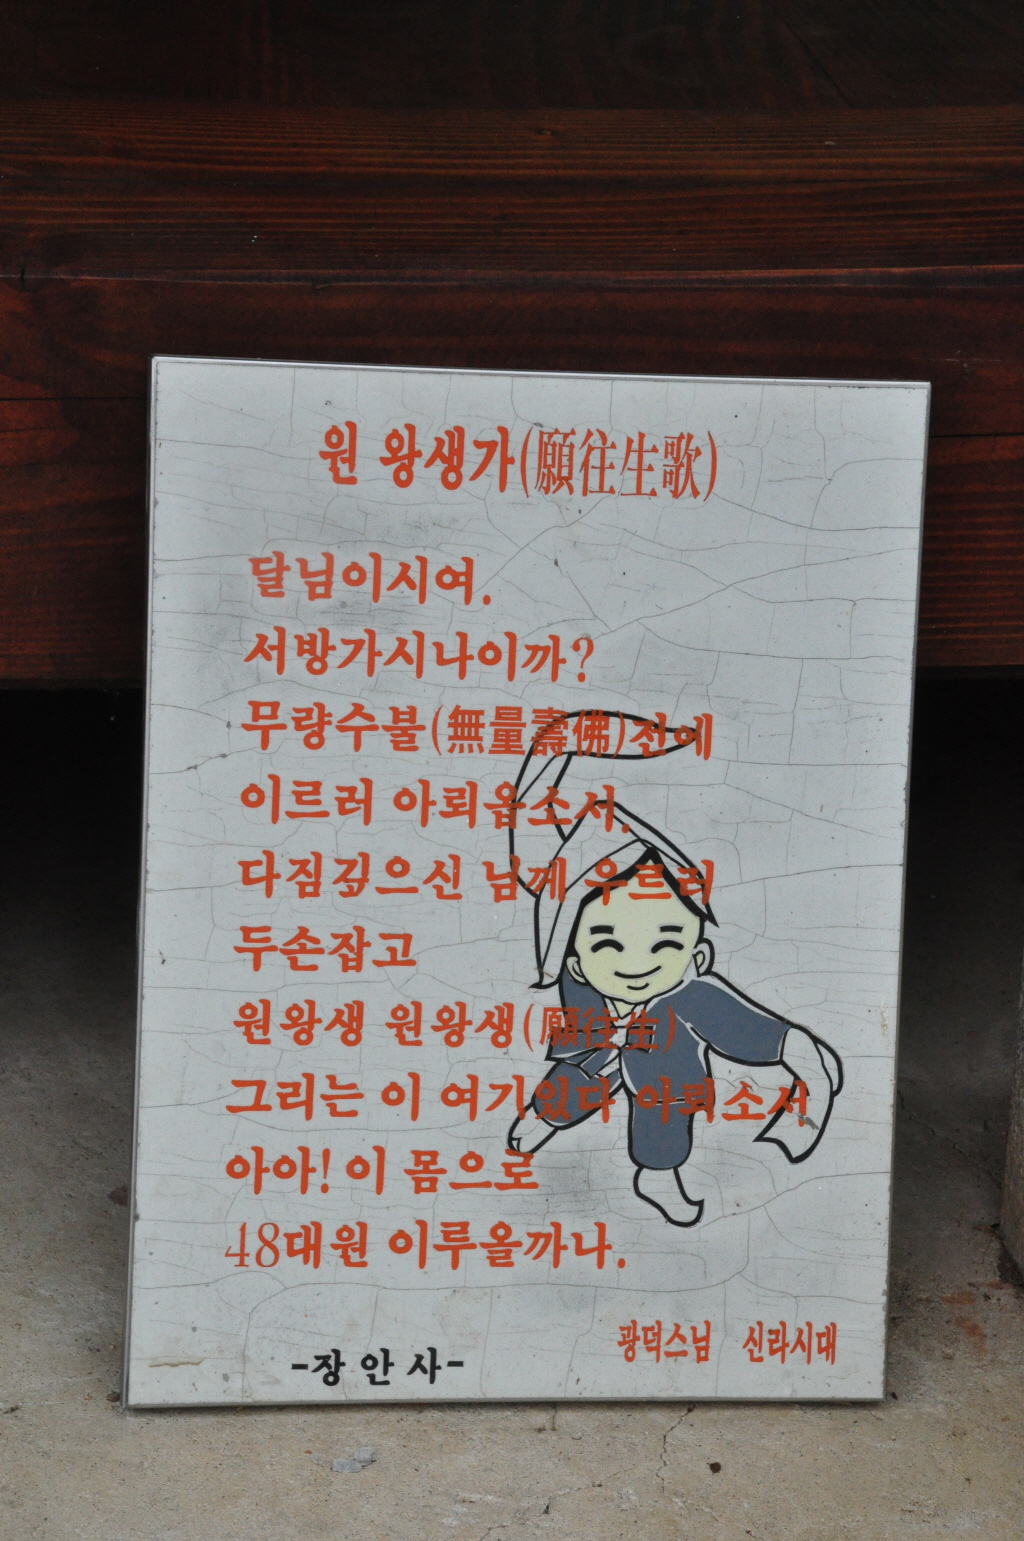 원 왕생가(願往生歌)
달님이시여.
서방가시나이까?
무량수불(無量壽佛)전에
이르러 아뢰옵소서.
다짐깊으신 님께 우르러
두손잡고
원왕생 원왕생(願往生)
그리는 이 여기있다 아뢰소서
아아! 이 몸으로
48대원 이루올까나.
광덕스님 신라시대
-장안사-